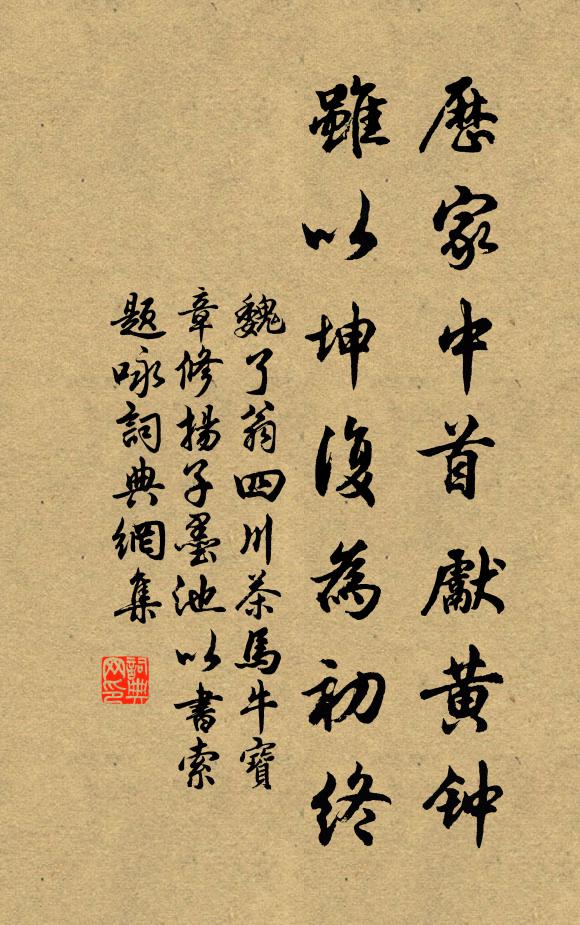 歷家中首獻黄钟
雖以坤復為初終
魏了翁四川茶馬牛寶
章修揚子墨池以書索
題咏詞典網集
詞典
网印